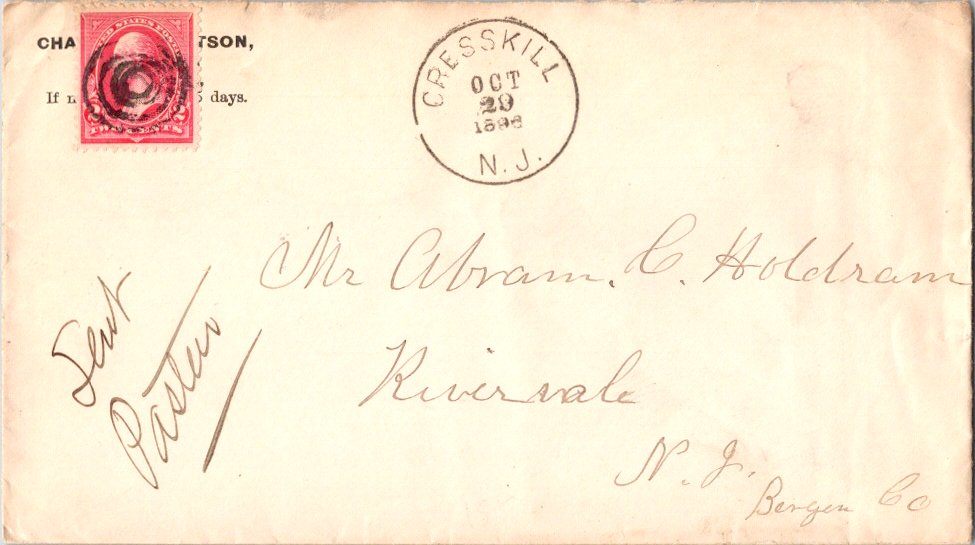 CHA TSON,
UNITED STATES POSTAGE
If n 5 days.
2 2
TWO CENTS
CRESSKILL
OCT
29
1898
N.J.
Mr Abram. C. Holdram
Rivervale
N. J.
Bergen Co
Sent